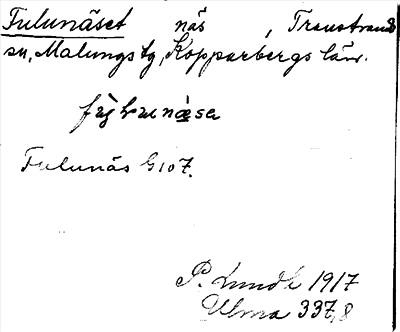 Fulunäset näs , Transtrands
sn, Malungs tg, Kopparbergs län.
Fulunäs G107.
P. Lundh 1917
Ulma 337,8